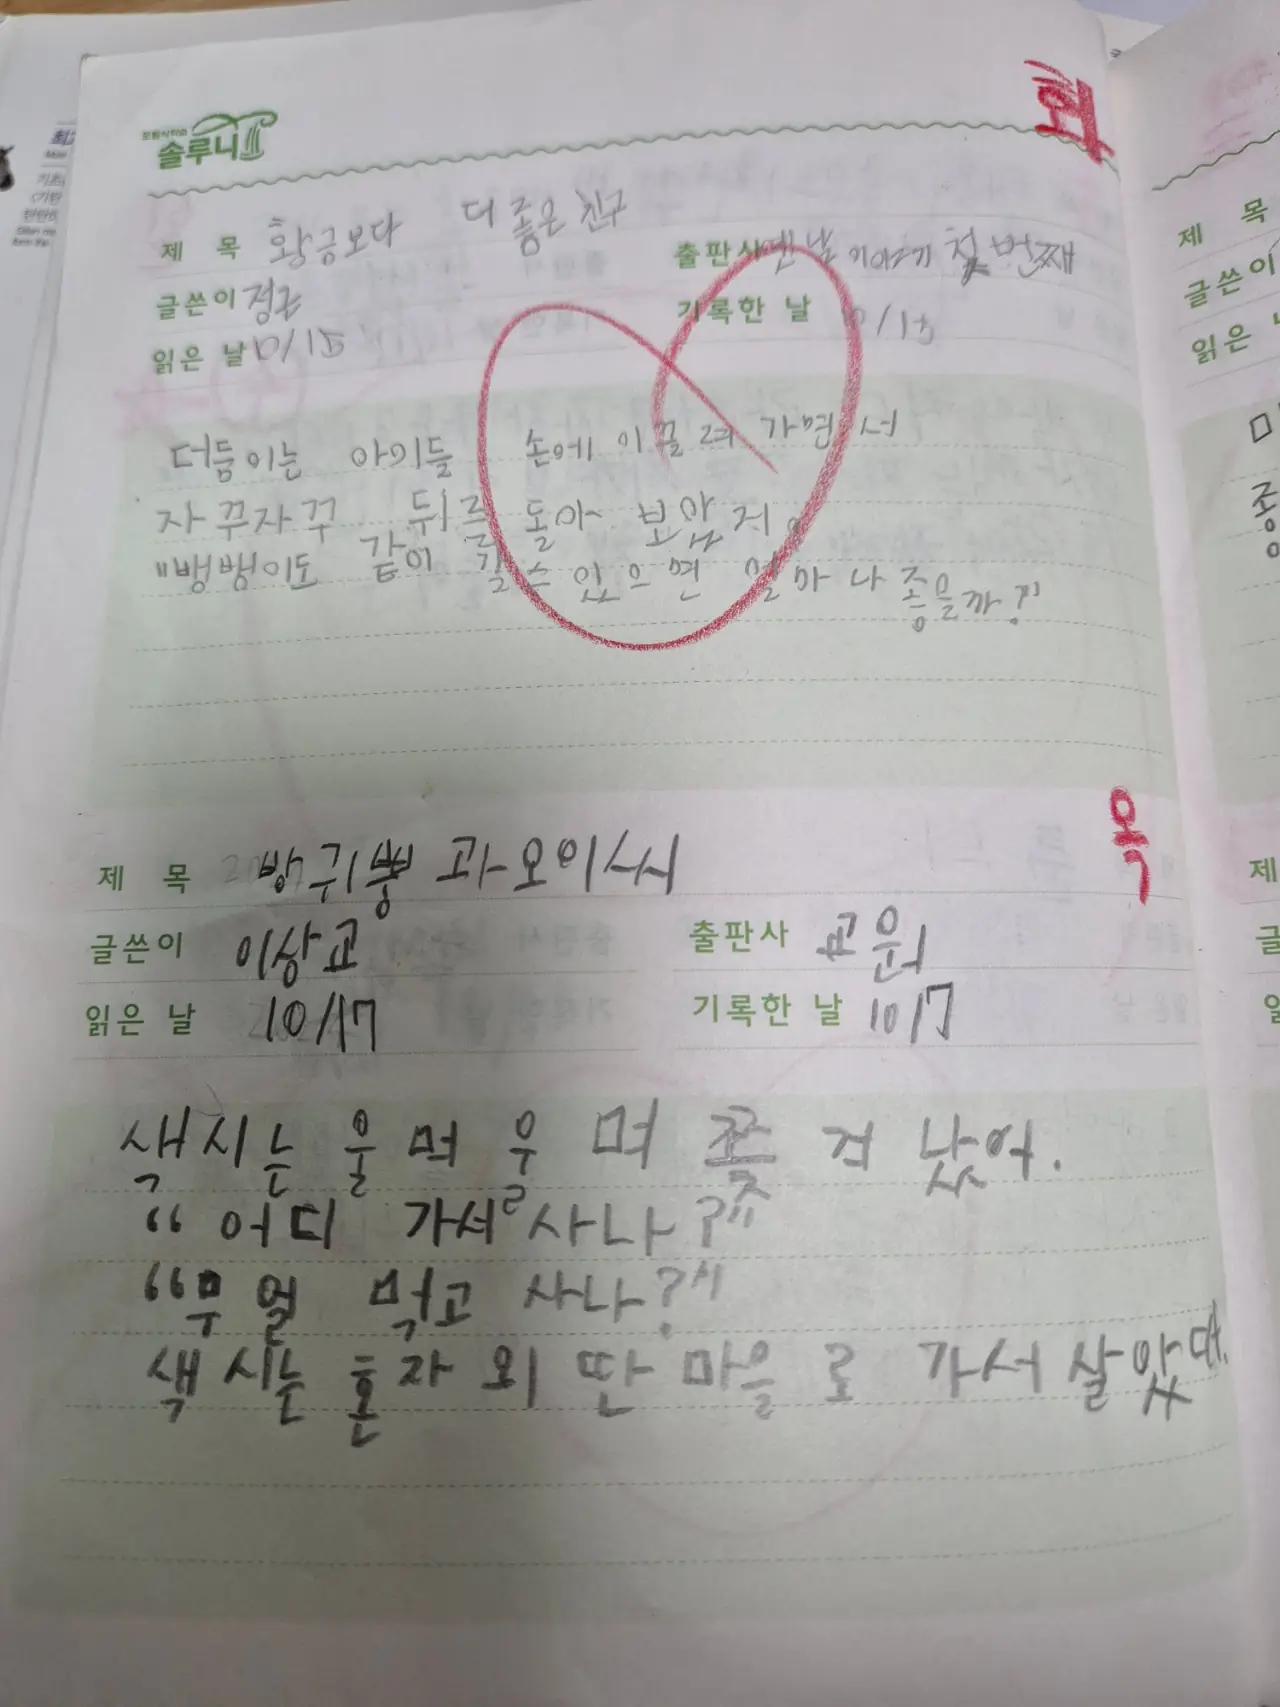 솔루니
화
제 목 황금보다 더 좋은 친구
출판사 옛날 이야기 첫 번째
글쓴이 정근
기록한 날
읽은 날
더듬이는 아이들 손에 이끌려 가면서
자꾸자꾸 뒤를 돌아 보았지.
"뱅뱅이도 같이 갈 수 있으면 얼마나 좋을까?"
목
제 목 방귀뿡 과 오이씨
글쓴이 이상교
출판사 교원
읽은 날 10/17
기록한 날 10/7
색시는 울며 울며 쫓겨 났어.
"어디 가서 사나?"
"무얼 먹고 사나?"
색시는 혼자 외딴 마을로 가서 살았대.
제 목
글쓴이
읽은 날